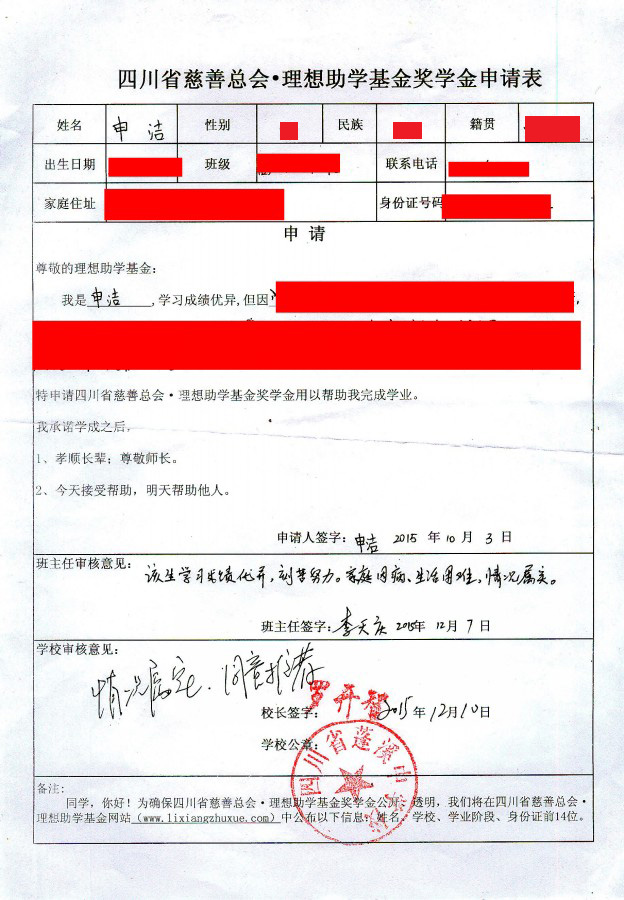 四川省慈善总会•理想助学基金奖学金申请表
姓名 申洁 性别 民族 籍贯
出生日期 班级 联系电话
家庭住址 身份证号码
申 请
尊敬的理想助学基金：
我是申洁,学习成绩优异,但因
特申请四川省慈善总会•理想助学基金奖学金用以帮助我完成学业。
我承诺学成之后，
1、孝顺长辈；尊敬师长。
2、今天接受帮助，明天帮助他人。
申请人签字：申洁 2015 年 10 月 3 日
班主任审核意见：
该生学习成绩优异，刻苦努力。家庭因病、生活困难，情况属实。
班主任签字：李天庆 2015年 12 月 7 日
学校审核意见：
情况属实．同意推荐
罗开智
校长签字： 2015 年 12 月 10 日
学校公章：
四川省蓬溪中学校
备注：
同学，你好！为确保四川省慈善总会•理想助学基金奖学金公开、透明，我们将在四川省慈善总会•
理想助学基金网站（www.lixiangzhuxue.com）中公布以下信息：姓名、学校、学业阶段、身份证前14位。